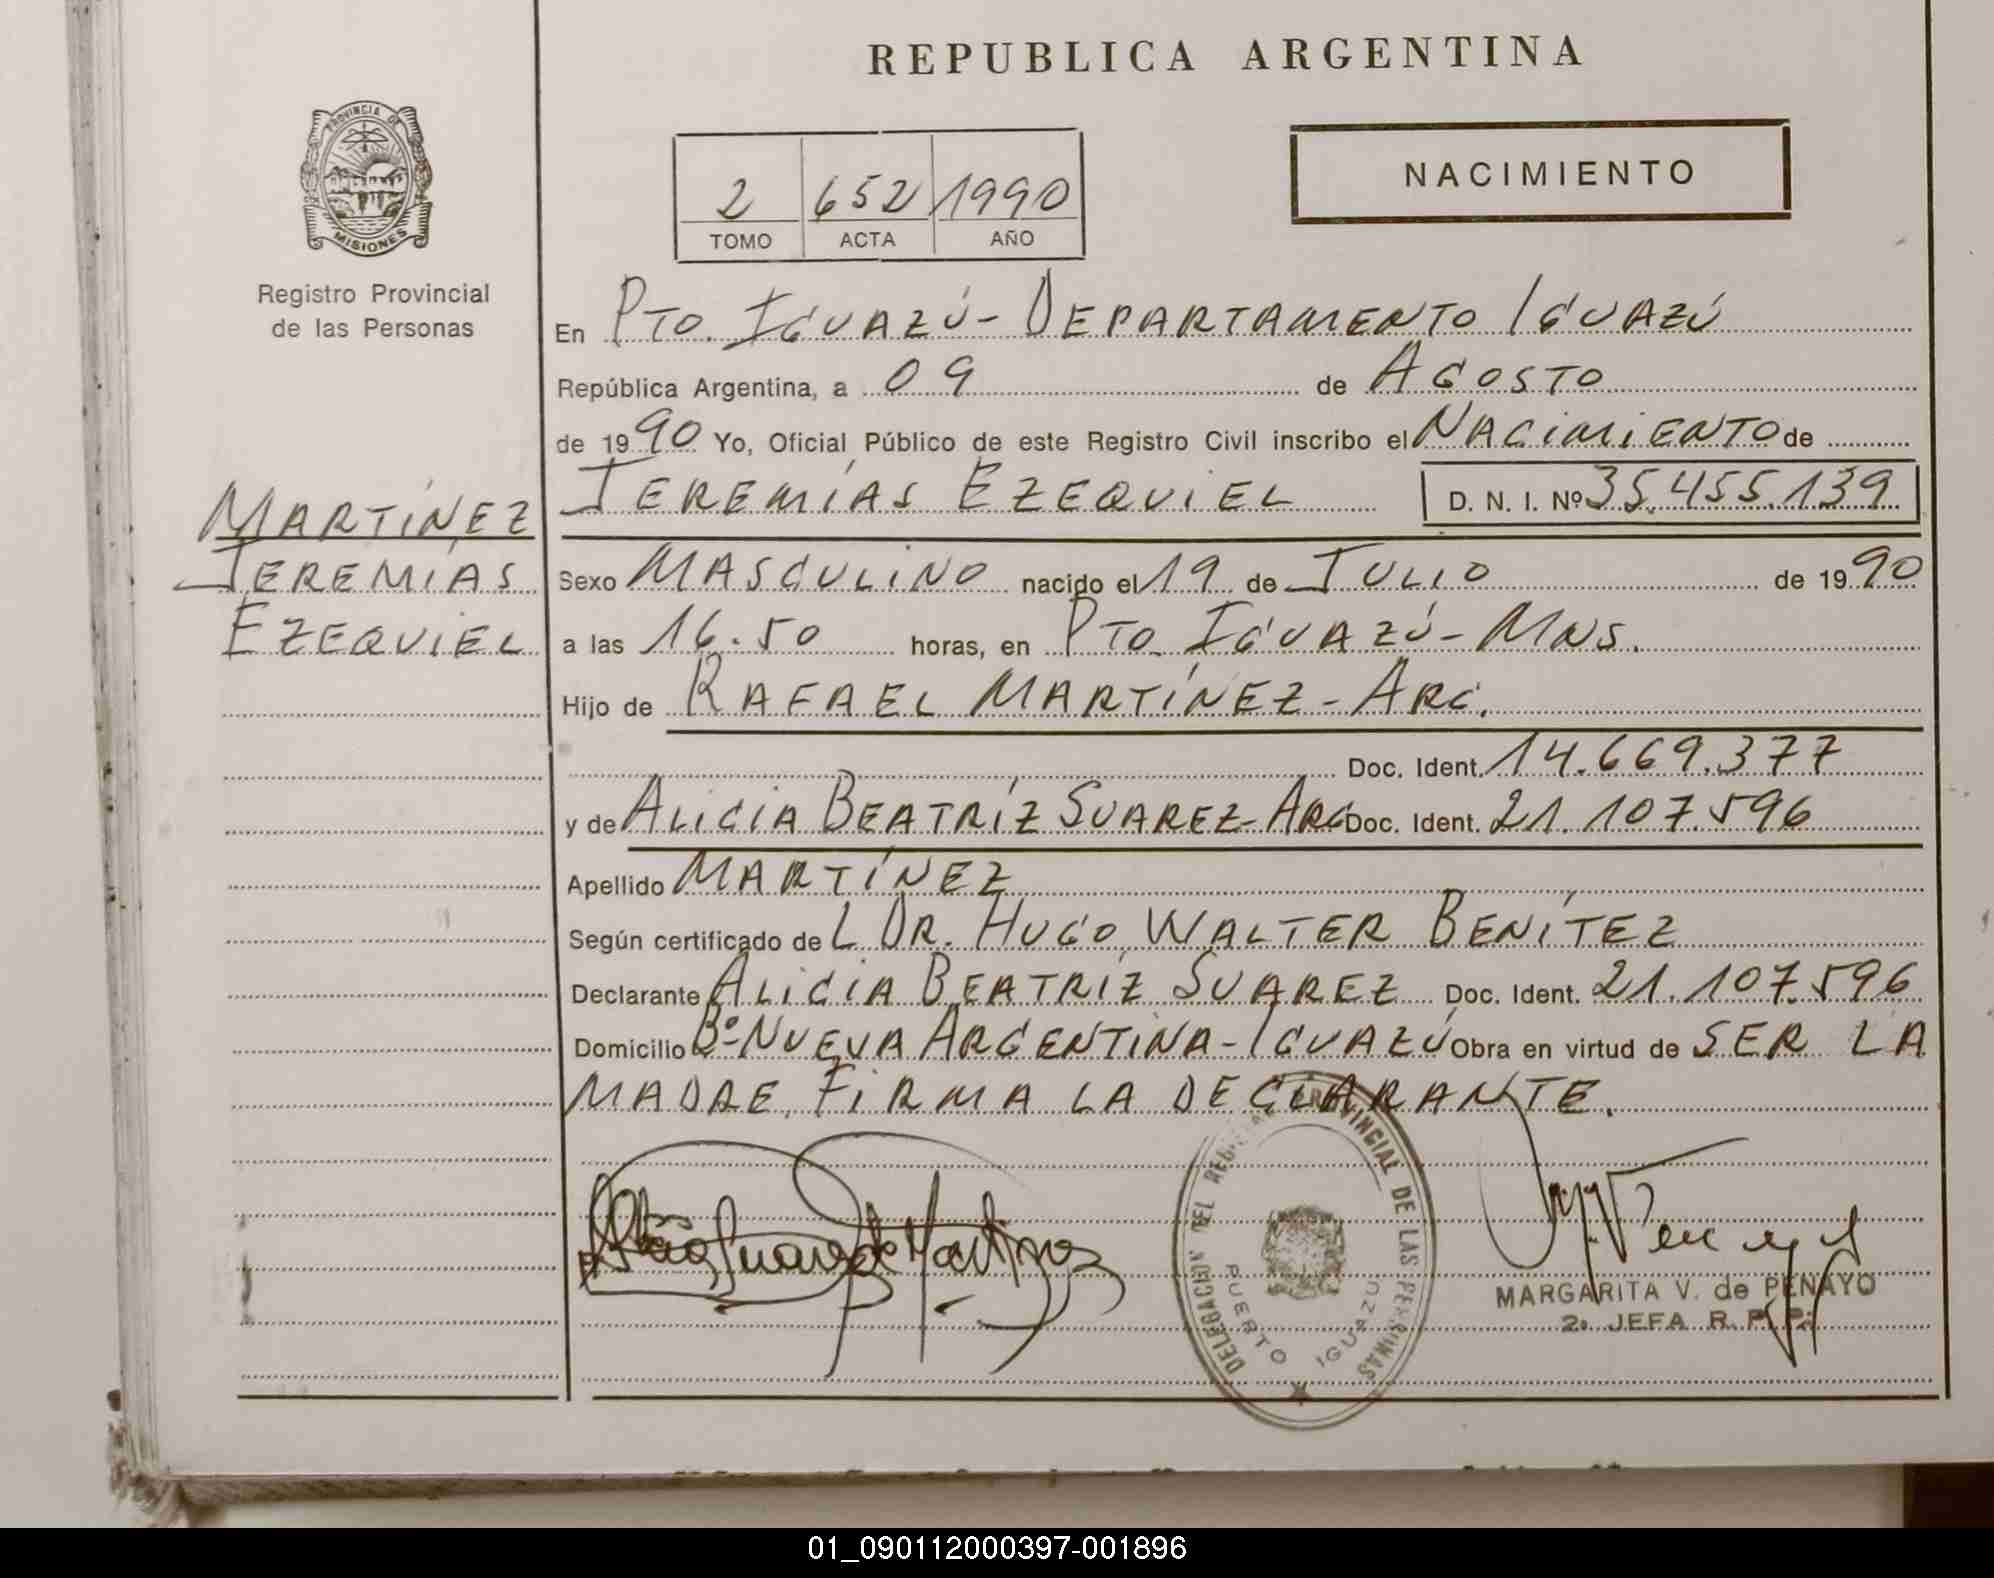 REPUBLICA ARGENTINA
PROVINCIA DE
MISIONES
Registro Provincial
de las Personas
NACIMIENTO
2 652 1990
TOMO ACTA AÑO
En PTO. IGUAZÚ - DEPARTAMENTO IGUAZÚ
República Argentina, a 09 de AGOSTO
de 1990 Yo, Oficial Público de este Registro Civil inscribo el NACIMIENTO de
JEREMÍAS EZEQUIEL D. N. I. Nº 35.455.139
MARTÍNEZ
JEREMÍAS
EZEQUIEL
Sexo MASCULINO nacido el 19 de JULIO de 1990
a las 16.50 horas, en PTO. IGUAZÚ - MNS.
Hijo de RAFAEL MARTÍNEZ - ARG.
Doc. Ident. 14.669.377
y de ALICIA BEATRÍZ SUAREZ - ARG Doc. Ident. 21.107.596
Apellido MARTÍNEZ
Según certificado de L DR. HUGO WALTER BENÍTEZ
Declarante ALICIA BEATRÍZ SUAREZ Doc. Ident. 21.107.596
Domicilio Bº NUEVA ARGENTINA - IGUAZÚ Obra en virtud de SER LA
MADRE. FIRMA LA DECLARANTE.
Alicia Suarez de Martinez
DELEGACION DEL REGISTRO PROVINCIAL DE LAS PERSONAS
PUERTO IGUAZU
MARGARITA V. de PENAYO
2a JEFA R. P. P.
01_090112000397-001896